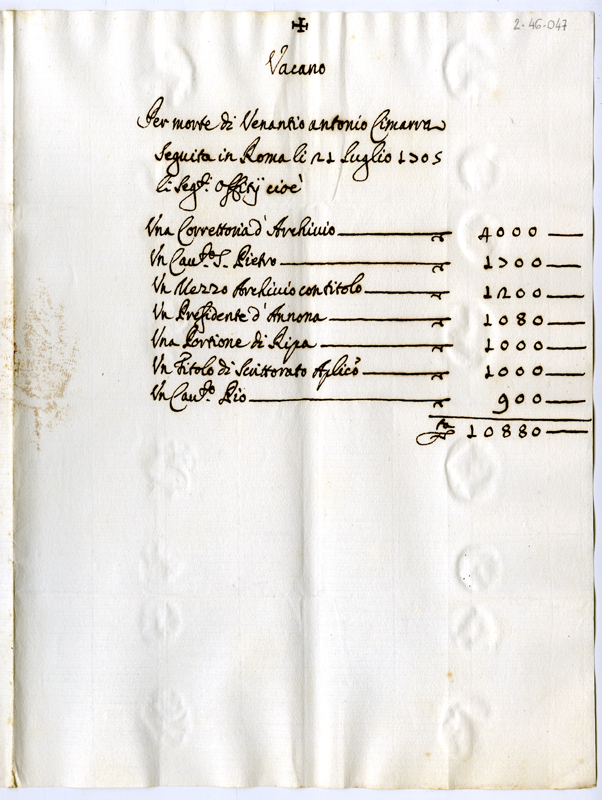 ✠
2-46-047
Vacano
Per morte di Venantio antonio Cimarra
seguita in Roma li 21 Luglio 1705
li segti. Offitij cioè
Una Correttoria d'Archivio 4000
Un Caute. S. Pietro 1700
Un Mezzo Archivio con titolo 1200
Un Presidente d'Annona 1080
Una Portione di Ripa 1000
Un Titolo di Scrittorato Aplico 1000
Un Caute. Pio 900
10880